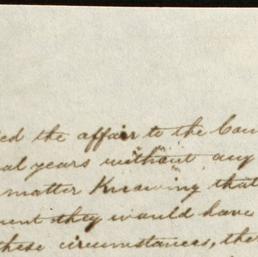 ed the affair to the Cou
al years without any
matter Knowing that
ent they would have
these circumstances, the